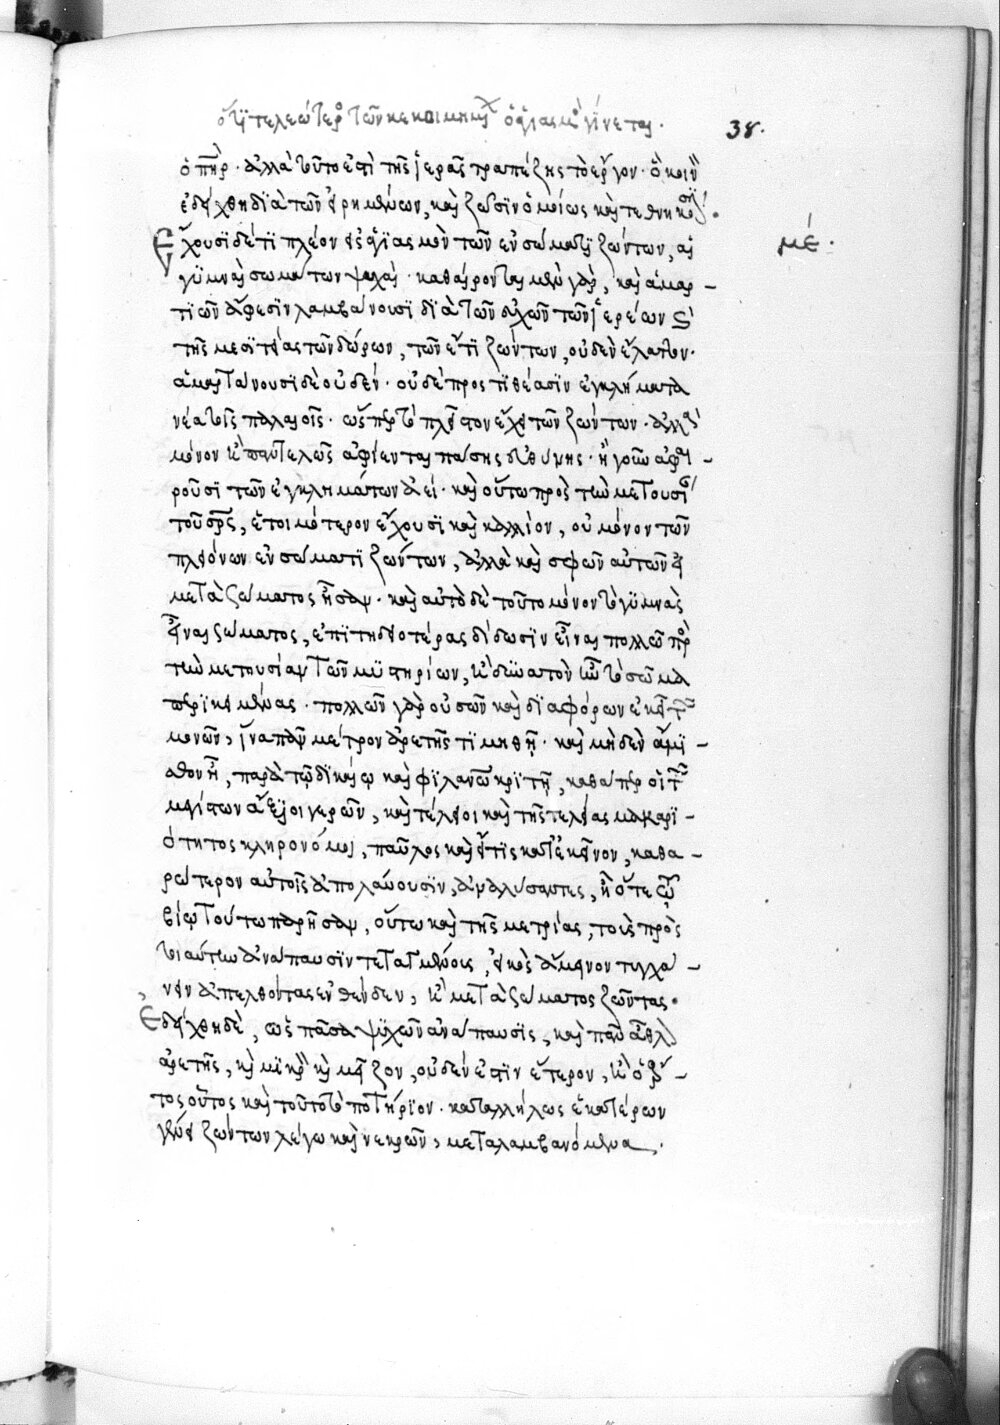 ὅτι τελεώτερον τῶν κεκοιμημένων ὁ ἁγιασμὸς γίνεται.
38.
ὁ πατήρ. ἀλλὰ τοῦτο ἐπὶ τῆς ἱερᾶς τραπέζης τὸ ἔργον. ὃ κοινὸν
ἐδείχθη διὰ τῶν εἰρημένων, καὶ ζῶσιν ὁμοίως καὶ τεθνηκόσι.
με΄.
Ἔχουσι δέ τι πλέον εἰς ἁγιασμὸν τῶν ἐν σώματι ζώντων, αἱ
γυμναὶ σωμάτων ψυχαί. καθαίρονται μὲν γὰρ, καὶ ἁμαρ-
τιῶν ἄφεσιν λαμβάνουσι διὰ τῶν εὐχῶν τῶν ἱερέων καὶ
τῆς μεσιτείας τῶν δώρων, τῶν ἔτι ζώντων, οὐδὲν ἔλαττον.
ἁμαρτάνουσι δὲ οὐδέν. οὐδὲ προστιθέασιν ἐγκλήματα
νέα τοῖς παλαιοῖς. ὥσπερ τὸ πλεῖστον ἔχει τῶν ζώντων. ἀλλ' ἢ
μόνον καὶ παντελῶς ἀφίενται πάσης εὐθύνης. ἢ γοῦν ἀφαι-
ροῦσι τῶν ἐγκλημάτων ἀεί. καὶ οὕτω πρὸς τὴν μετουσίαν
τοῦ σωτῆρος, ἑτοιμότερον ἔχουσι καὶ κάλλιον, οὐ μόνον τῶν
πλειόνων ἐν σώματι ζώντων, ἀλλὰ καὶ σφῶν αὐτῶν εἰ
μετὰ σώματος ἦσαν. καὶ αὐτὸ δὲ τοῦτο μόνον τὸ γυμνὰς
εἶναι σώματος, ἐπιτηδειοτέρας δίδωσιν εἶναι πολλῷ πρὸς
τὴν μετουσίαν τῶν μυστηρίων, ἢ δυνατὸν ἦν τὸ σῶμα
περικειμένας. πολλῶν γὰρ οὐσῶν καὶ διαφόρων ἐκεῖ τῶν
μονῶν, ἵνα πᾶν μέτρον ἀρετῆς τιμηθῇ. καὶ μηδὲν ἀμι-
σθον ᾖ, παρὰ τῷ δικαίῳ καὶ φιλανθρώπῳ κριτῇ, καθάπερ οἱ τῶν
μεγίστων ἄξιοι γερῶν, καὶ τέλειοι καὶ τῆς τελείας μακαρι-
ότητος κληρονόμοι, παῦλος καὶ εἴ τις κατ' ἐκεῖνον, καθα-
ρώτερον αὐτοῖς ἀπολαύουσιν, ἀναλύσαντες, ἢ ὅτε τῷ
βίῳ τούτῳ παρῆσαν, οὕτω καὶ τῆς μετρίας, τοὺς πρὸς
τοιαύτην ἀνάπαυσιν τεταγμένους, εἰκὸς ἄμεινον τυγχά-
νειν ἀπελθόντας ἐνθένδεν, ἢ μετὰ σώματος ζῶντας.
Ἐδείχθη δὲ, ὡς πᾶσα ψυχῶν ἀνάπαυσις, καὶ πᾶν ἆθλον
ἀρετῆς, καὶ μικρὸν καὶ μεῖζον, οὐδέν ἐστιν ἕτερον, ἢ ὁ ἄρ-
τος οὗτος καὶ τοῦτο τὸ ποτήριον. καταλλήλως ἑκατέρων
γένει ζώντων λέγω καὶ νεκρῶν, μεταλαμβανόμενα.